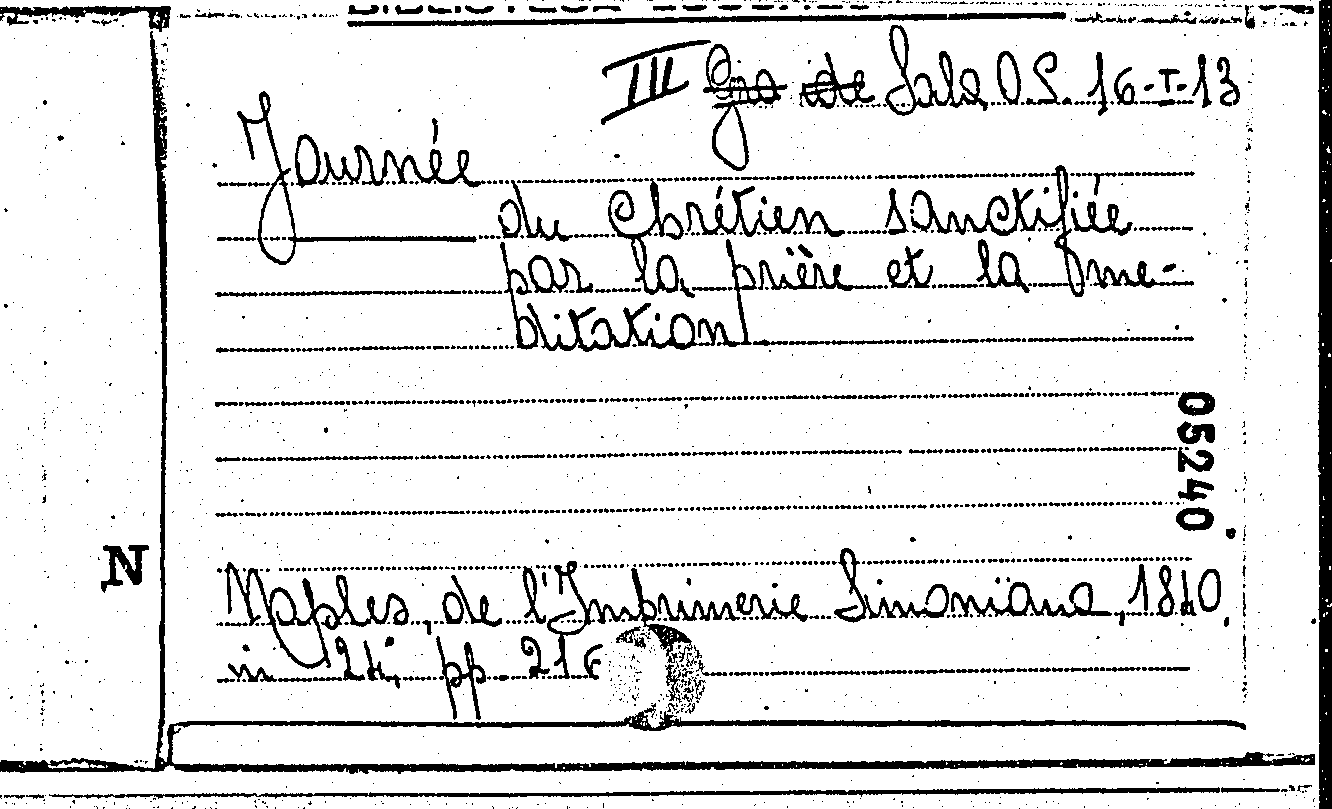 III Gra de Sala O.S. 16-I-13
Journée
du Chrétien sanctifiée
par la prière et la me-
ditation.
05240
N
Naples, de l'Imprimerie Simoniana, 1840.
in 24; pp. 216